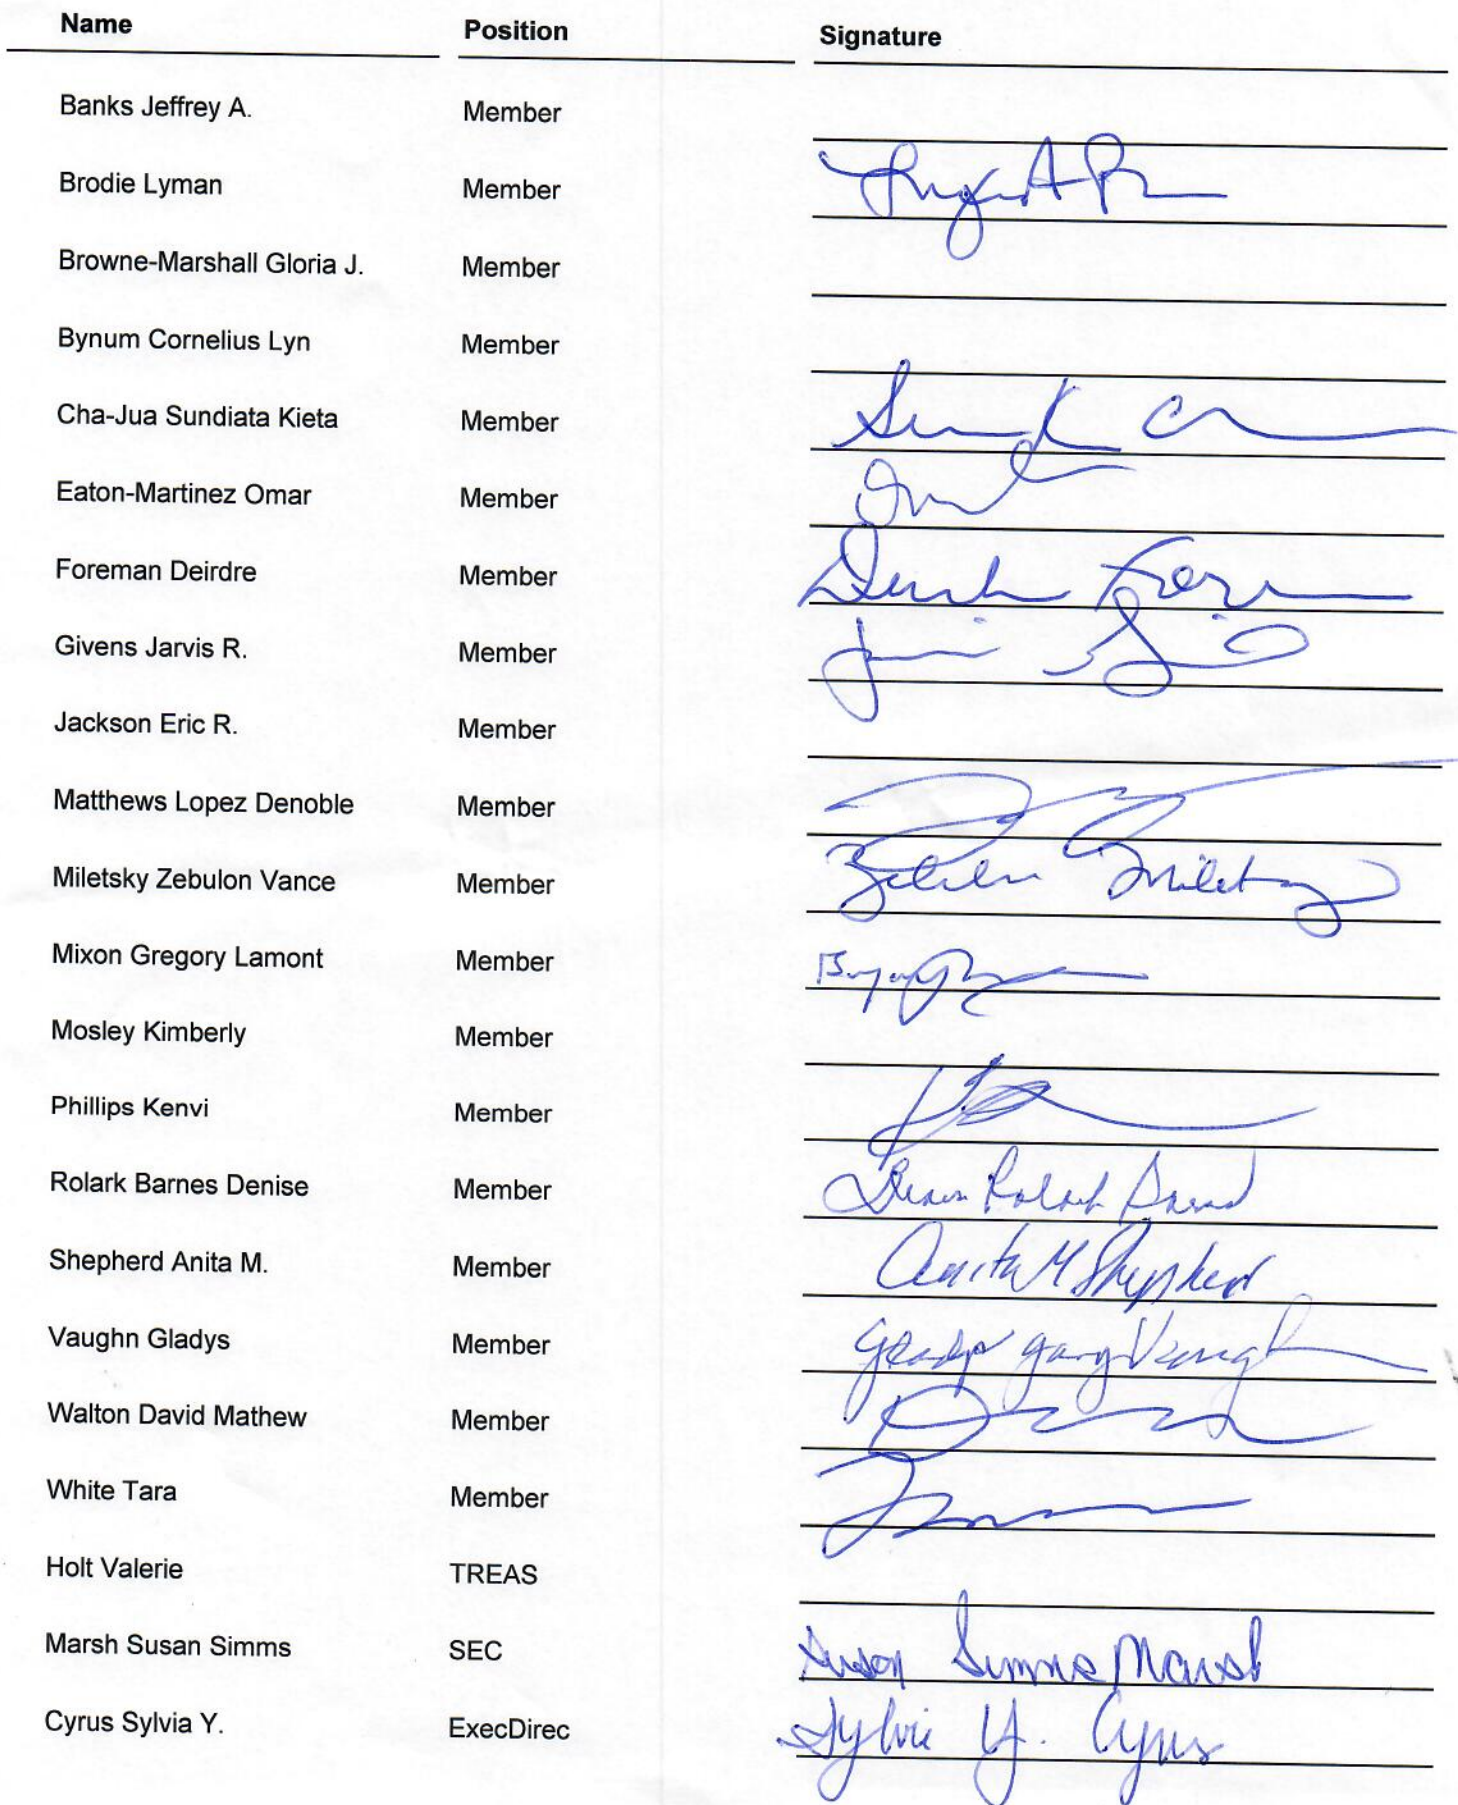 Name Position Signature
Banks Jeffrey A. Member
Brodie Lyman Member
Browne-Marshall Gloria J. Member
Bynum Cornelius Lyn Member
Cha-Jua Sundiata Kieta Member
Eaton-Martinez Omar Member
Foreman Deirdre Member
Givens Jarvis R. Member
Jackson Eric R. Member
Matthews Lopez Denoble Member
Miletsky Zebulon Vance Member Miletsky
Mixon Gregory Lamont Member
Mosley Kimberly Member
Phillips Kenvi Member
Rolark Barnes Denise Member Rolark
Shepherd Anita M. Member Anita M Shepherd
Vaughn Gladys Member Vaughn
Walton David Mathew Member
White Tara Member
Holt Valerie TREAS
Marsh Susan Simms SEC Susan Simms Marsh
Cyrus Sylvia Y. ExecDirec Sylvia Y. Cyrus